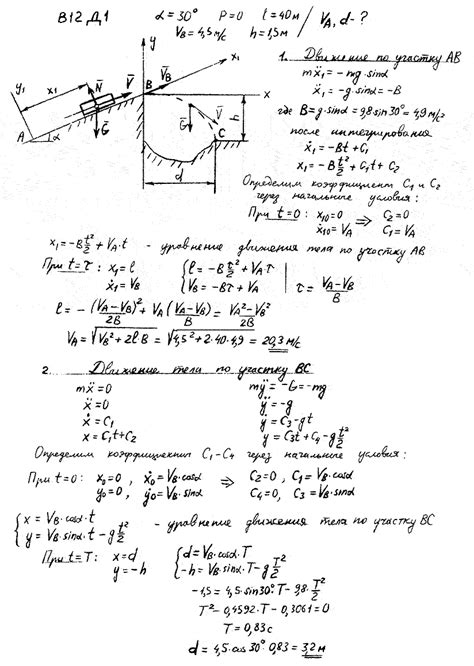 В12 Д1 α = 30° P = 0 l = 40м / V_A, d - ?
V_B = 4,5 м/с h = 1,5м
1. Движение по участку АВ
mẍ₁ = -mg·sinα
ẍ₁ = -g·sinα = -B
где B = g·sinα = 9,8 sin30° = 4,9 м/с²
после интегрирования
ẋ₁ = -Bt + C₁
x₁ = -B t²/2 + C₁t + C₂
Определим коэффициент С₁ и С₂
через начальные условия:
При t = 0: x₁₀ = 0 ⇒ C₂ = 0
ẋ₁₀ = V_A C₁ = V_A
y₁ x₁ N̄ V̄ y V̄_B x₁
B x
A α Ḡ Ḡ V̄ C h
d
x₁ = -B t²/2 + V_A·t - уравнение движения тела по участку АВ
При t = τ: x₁ = l { l = -B τ²/2 + V_A·τ | τ = (V_A - V_B)/B
ẋ₁ = V_B V_B = -Bτ + V_A
l = -(V_A - V_B)²/2B + V_A (V_A - V_B)/B = (V_A² - V_B²)/2B
V_A = √(V_B² + 2lB) = √(4,5² + 2·40·4,9) = 20,3 м/с
2. Движение тела по участку ВС
mẍ = 0 mÿ = -G = -mg
ẍ = 0 ÿ = -g
ẋ = C₁ ẏ = C₃ - gt
x = C₁t + C₂ y = C₃t + C₄ - g t²/2
Определим коэффициенты С₁-С₄ через начальные условия:
При t = 0: x₀ = 0, ẋ₀ = V_B·cosα ⇒ C₂ = 0, C₁ = V_B·cosα
y₀ = 0, ẏ₀ = V_B·sinα C₄ = 0, C₃ = V_B·sinα
{ x = V_B·cosα·t - уравнение движения тела по участку ВС
y = V_B·sinα·t - g t²/2
При t = T: x = d { d = V_B·cosα·T
y = -h -h = V_B·sinα·T - g T²/2
-1,5 = 4,5·sin30°·T - 9,8·T²/2
T² - 0,4592·T - 0,3061 = 0
T = 0,83 с
d = 4,5·cos30°·0,83 = 3,2 м